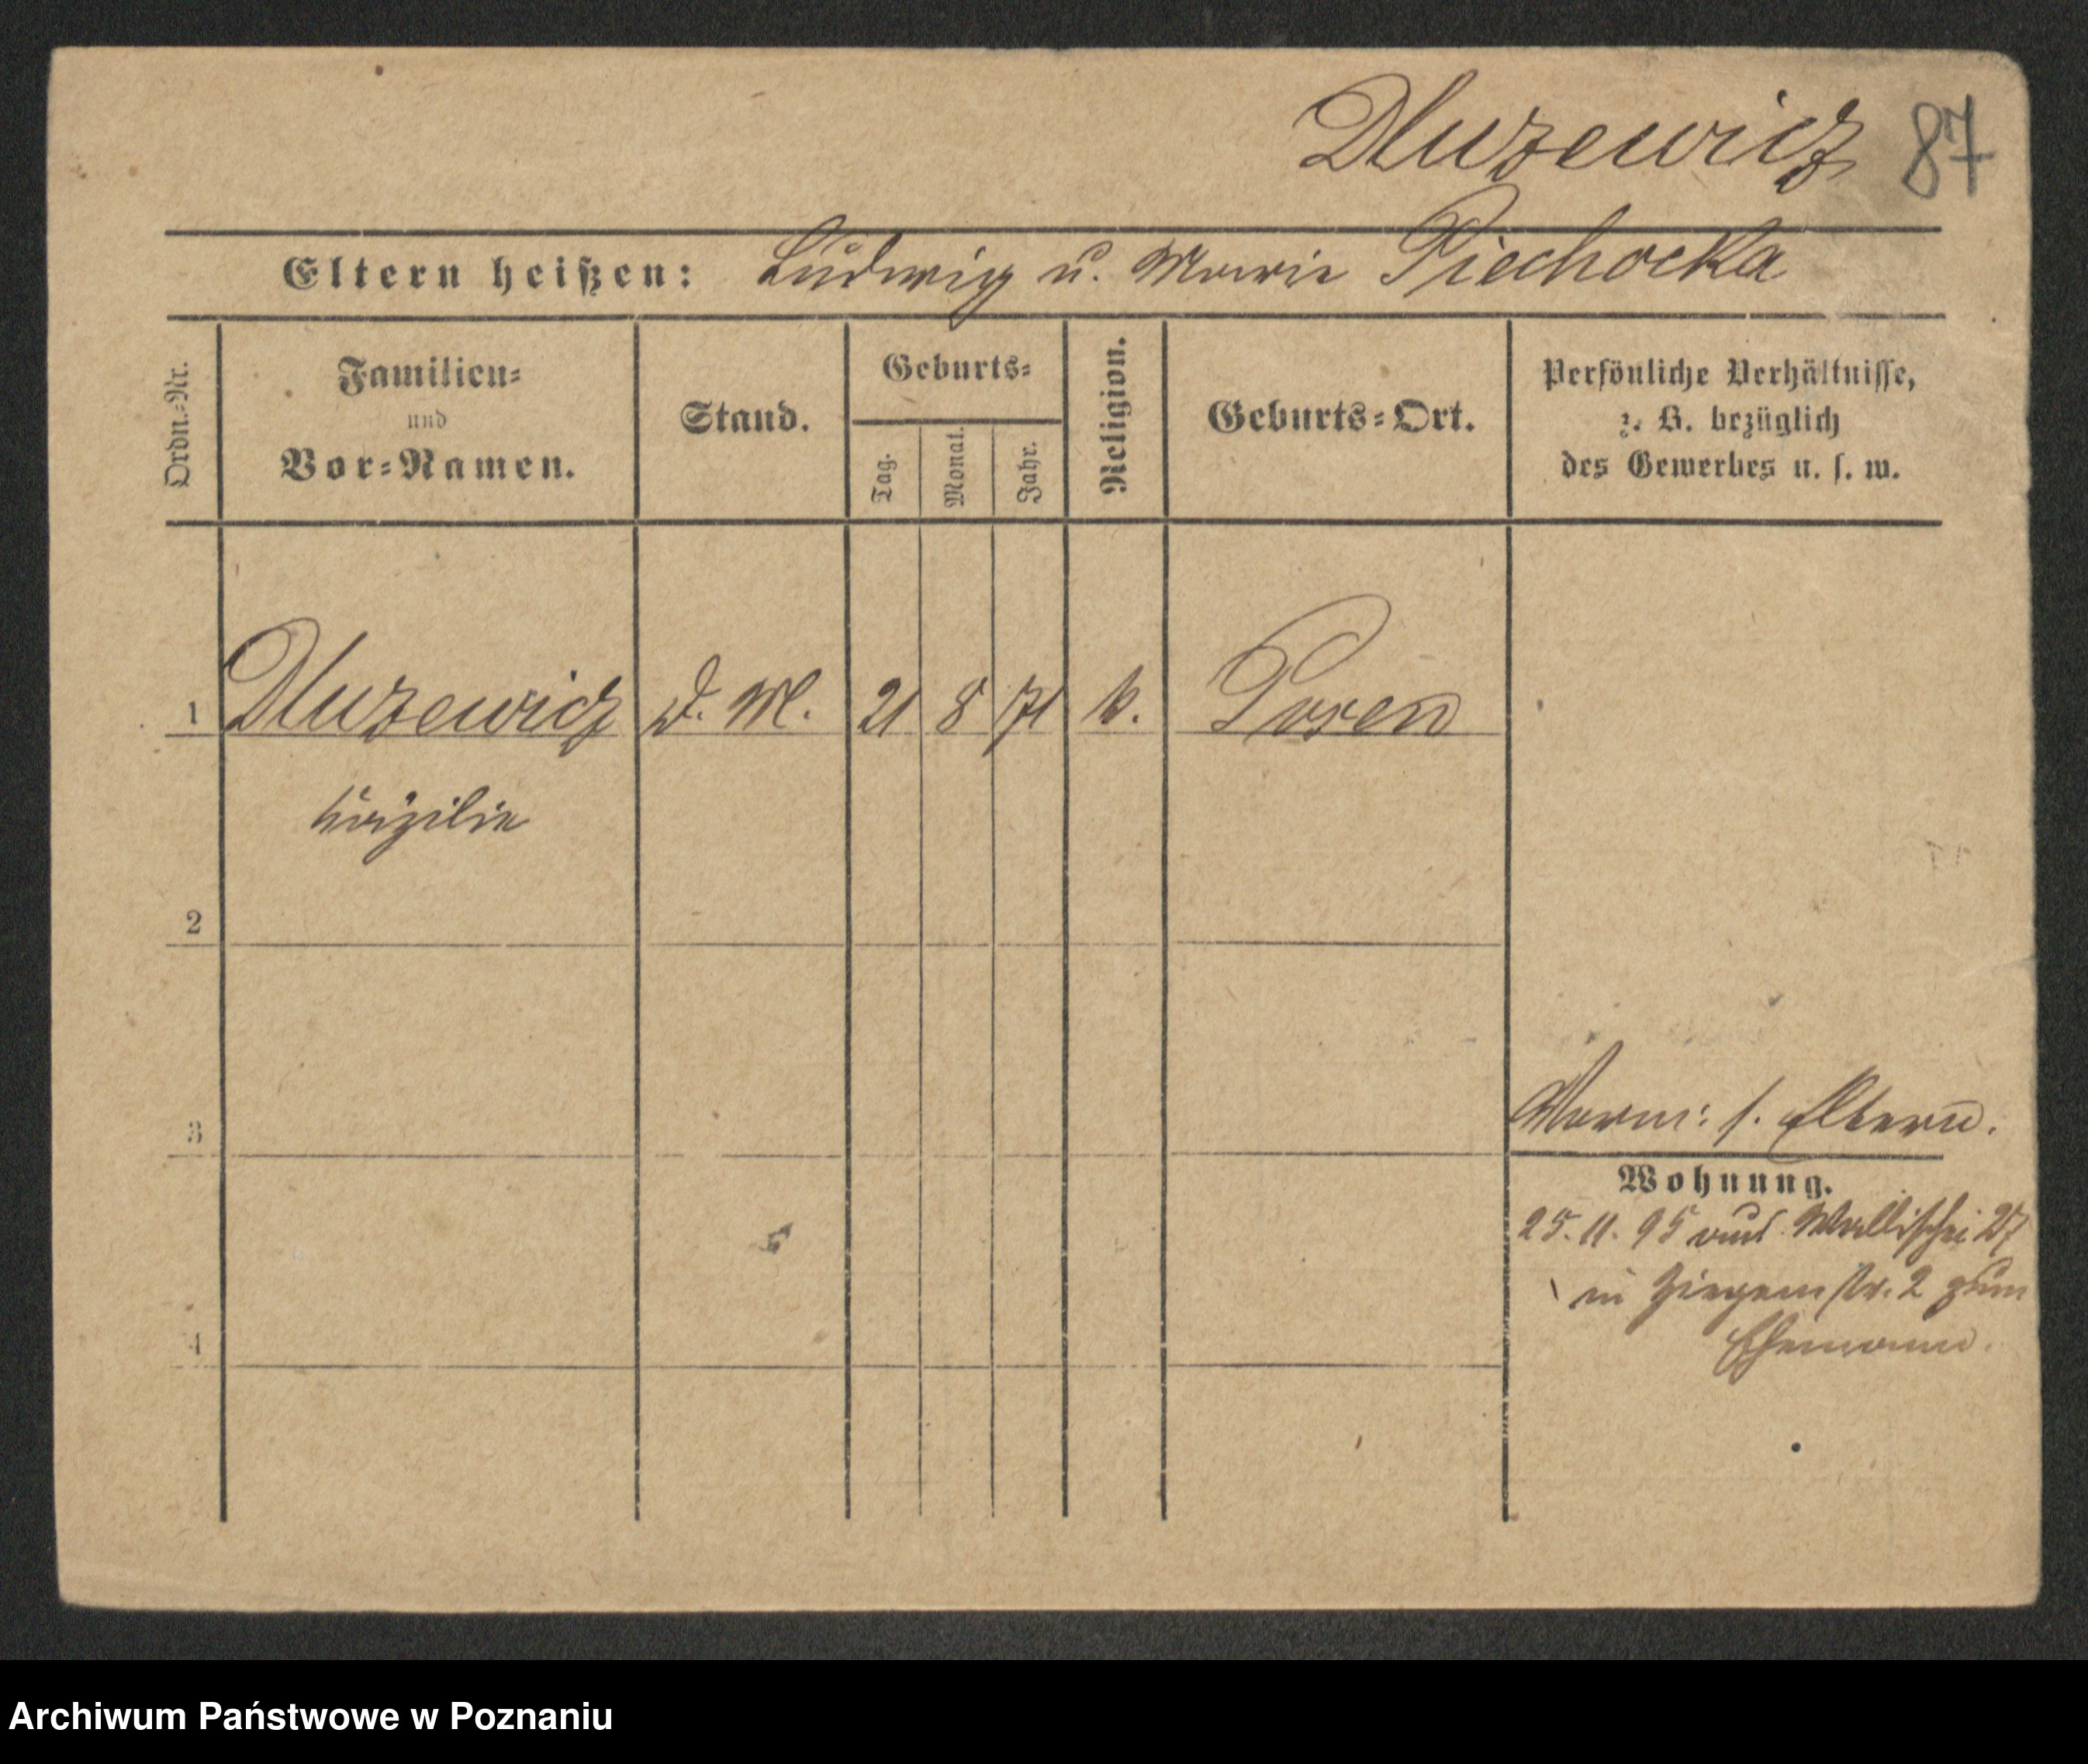 Dluzewicz 87
Eltern heißen: Ludwig u. Marie Piechocka
Ordn.-Nr.
Familien-
und
Vor-Namen.
Stand.
Geburts-
Tag.
Monat.
Jahr.
Religion.
Geburts-Ort.
Persönliche Verhältnisse,
z. B. bezüglich
des Gewerbes u. s. w.
1 Dluzewicz D. M. 21 8 71 k. Posen
2
3
4
s. Eltern.
Wohnung.
25. 11. 95 aus Wallischei 27
in Ziegenstr. 2 zum
Ehemann.
Archiwum Państwowe w Poznaniu